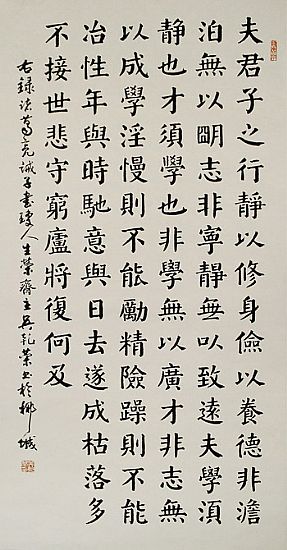 夫君子之行靜以修身儉以養德非澹
泊無以明志非寧靜無以致遠夫學須
靜也才須學也非學無以廣才非志無
以成學淫慢則不能勵精險躁則不能
冶性年與時馳意與日去遂成枯落多
不接世悲守窮廬將復何及
右錄諸葛亮誡子書人生榮齋主榮書於柳城